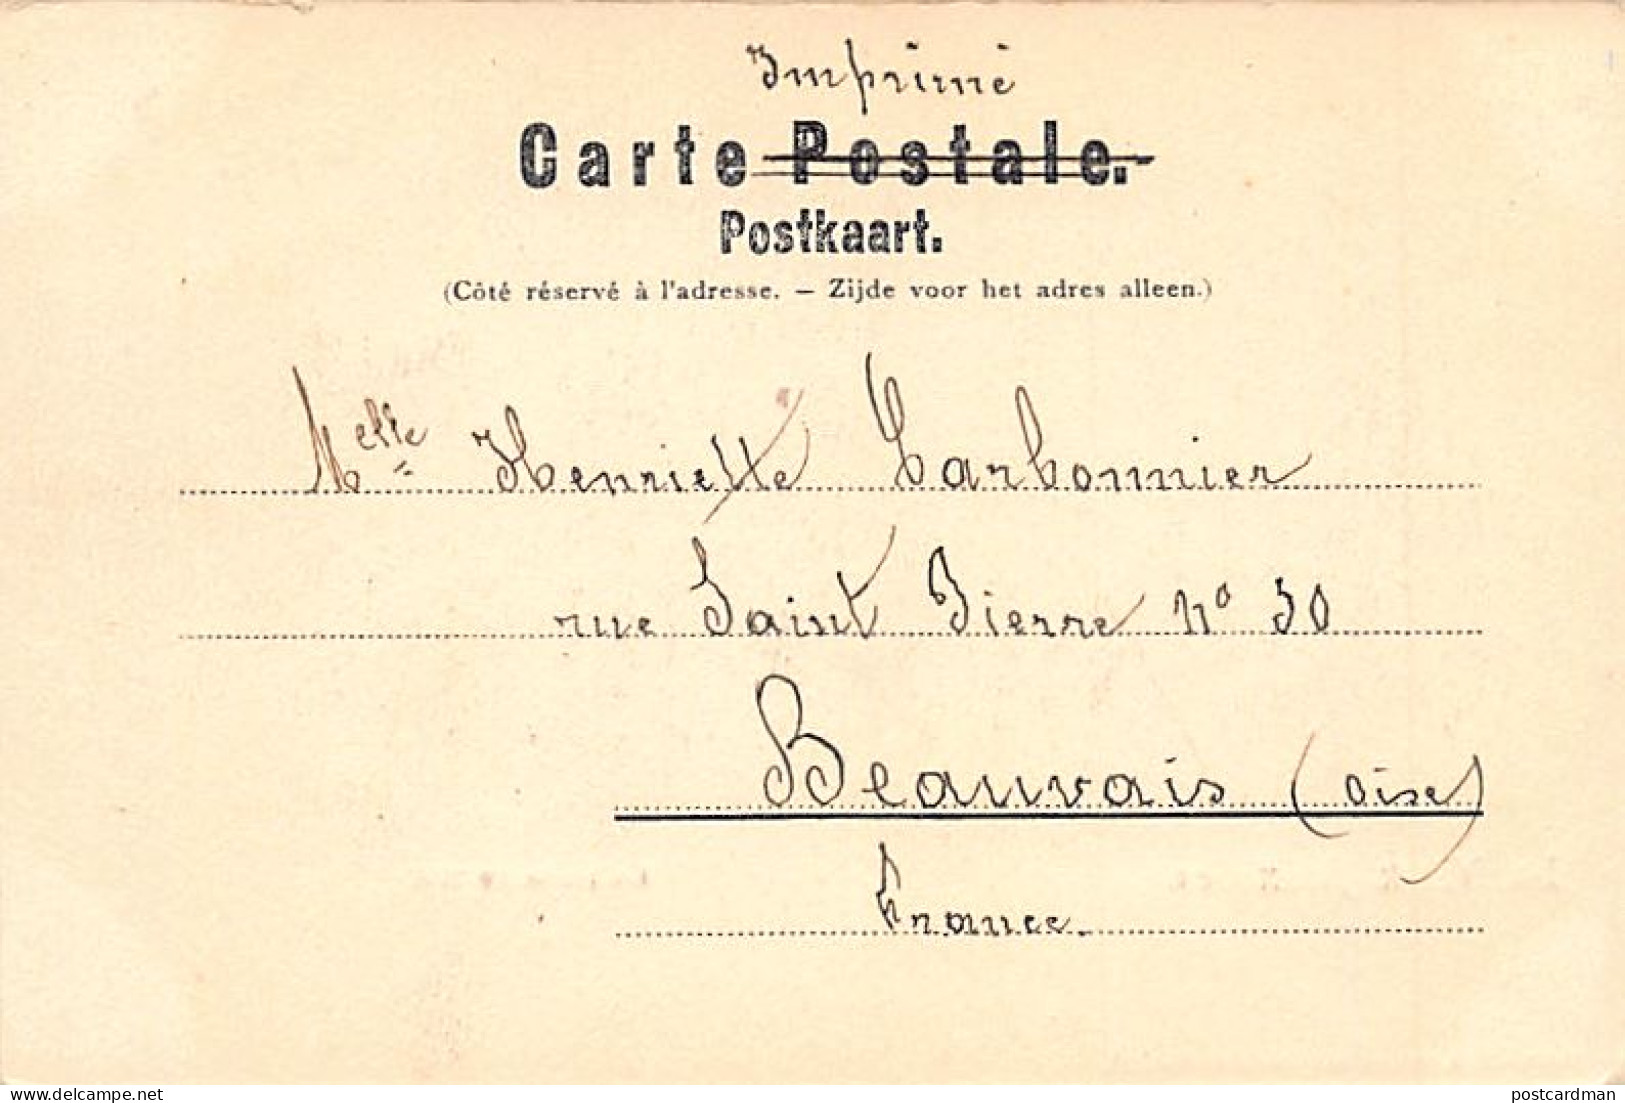 Imprimé
Carte Postale.
Postkaart.
(Côté réservé à l'adresse. — Zijde voor het adres alleen.)
Melle Henriette Carbonnier
rue Saint Pierre no 30
Beauvais (oise)
France.
www.delcampe.net
postcardman